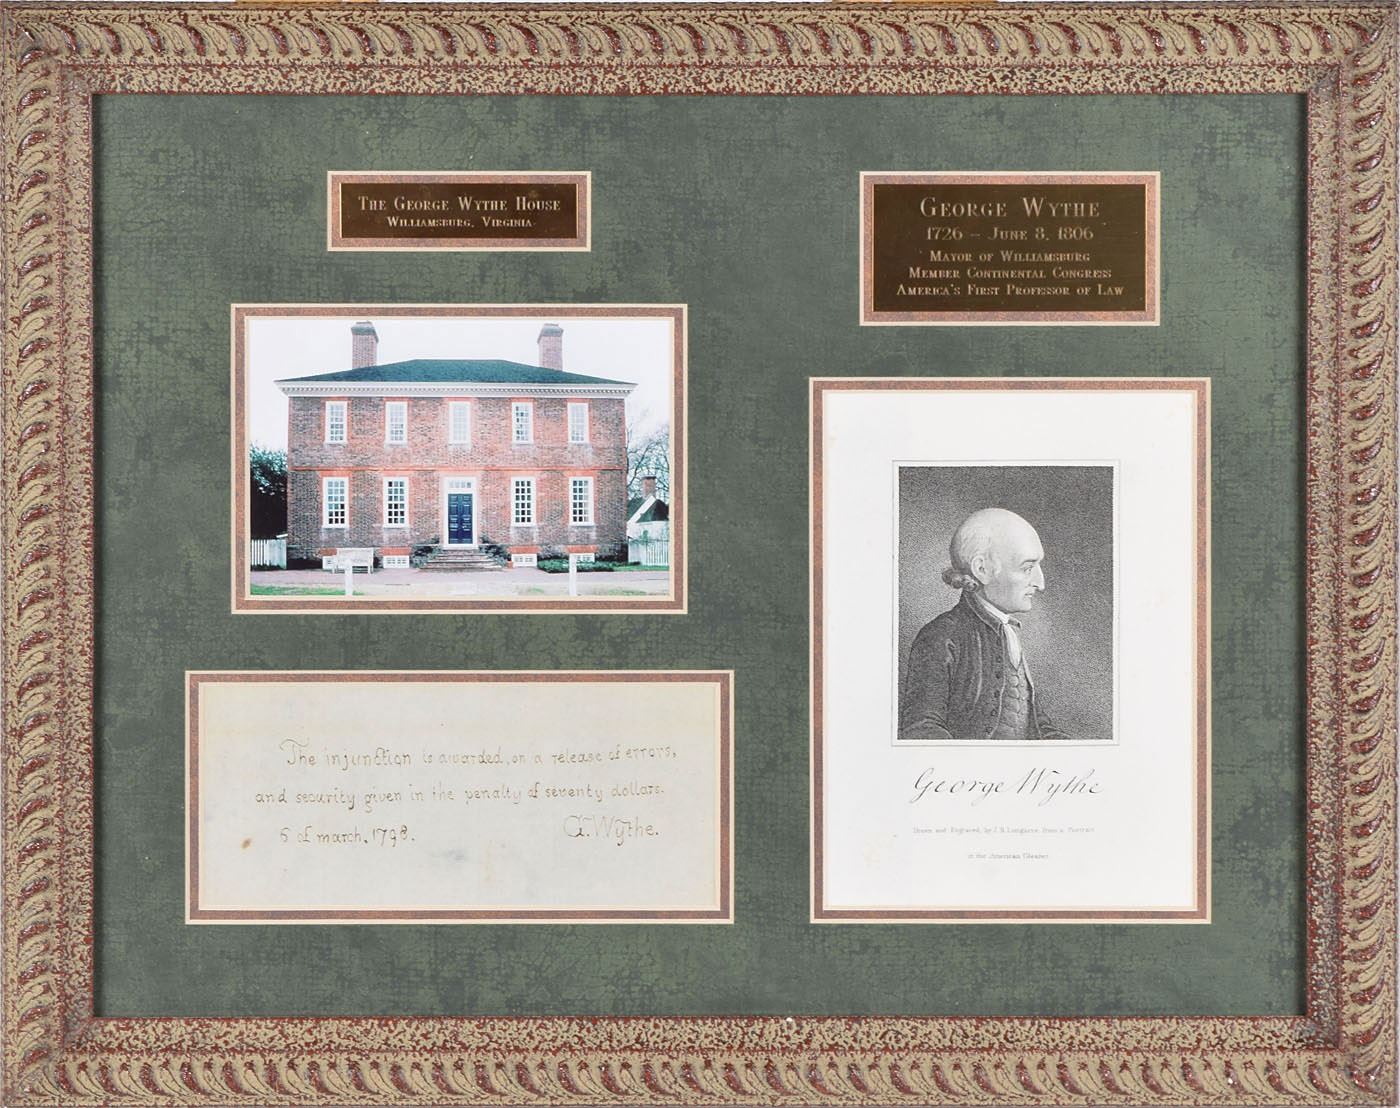 THE GEORGE WYTHE HOUSE
WILLIAMSBURG, VIRGINIA
GEORGE WYTHE
1726 – JUNE 8, 1806
MAYOR OF WILLIAMSBURG
MEMBER CONTINENTAL CONGRESS
AMERICA'S FIRST PROFESSOR OF LAW
The injunction is awarded, on a release of errors,
and security given in the penalty of seventy dollars.
6 of march, 1798.
G. Wythe.
George Wythe
Drawn and Engraved, by J. B. Longacre from a Portrait
in the American Gleaner.